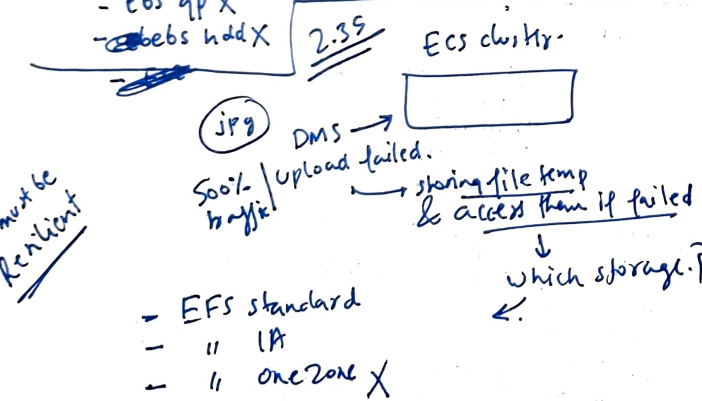 - ebs hdd X
2.35
ECS cluster.
jpg
DMS →
500% traffic
upload failed.
→ storing file temp
& access them if failed
↓
which storage.?
must be
Resilient
- EFS standard
- " IA
- " one zone X